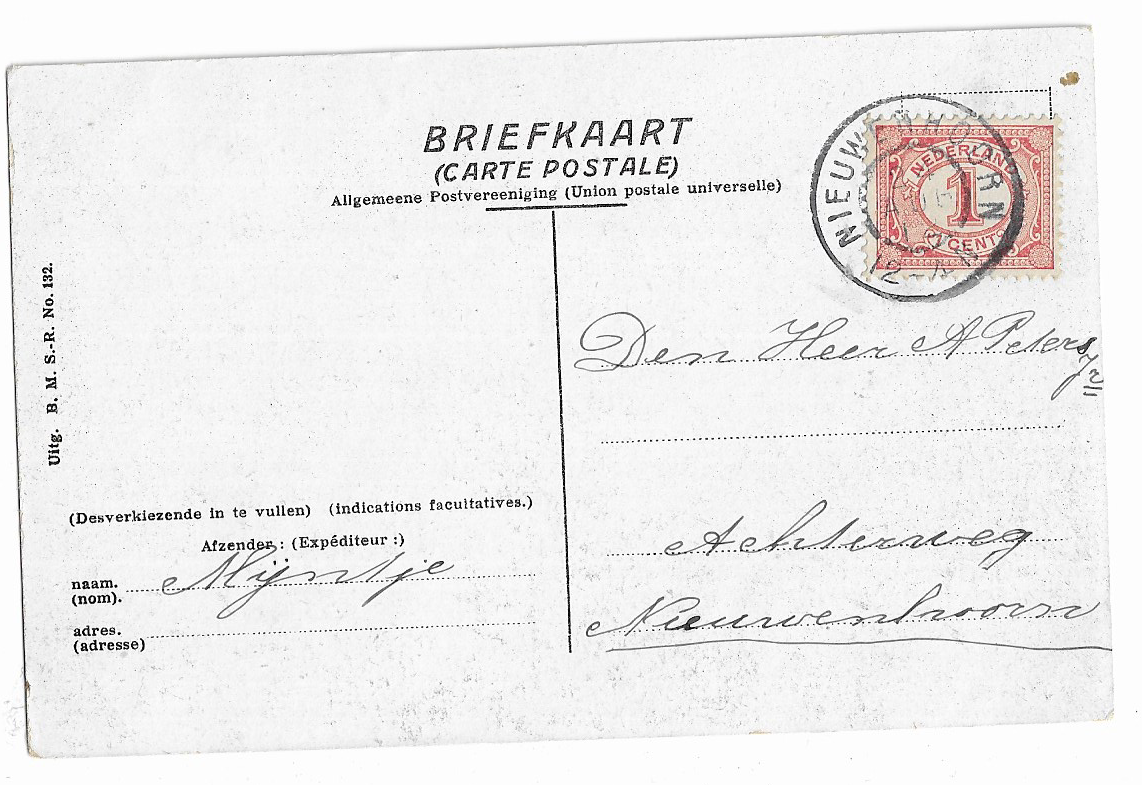 BRIEFKAART
(CARTE POSTALE)
Allgemeene Postvereeniging (Union postale universelle)
NIEUWENHOORN
NEDERLAND
1
CENT
Uitg. B. M. S.-R. No. 132.
Den Heer A Peters
Jr
Achterweg
Nieuwenhoorn
(Desverkiezende in te vullen) (indications facultatives.)
Afzender : (Expéditeur :)
naam. Mijntje
(nom).
adres.
(adresse)